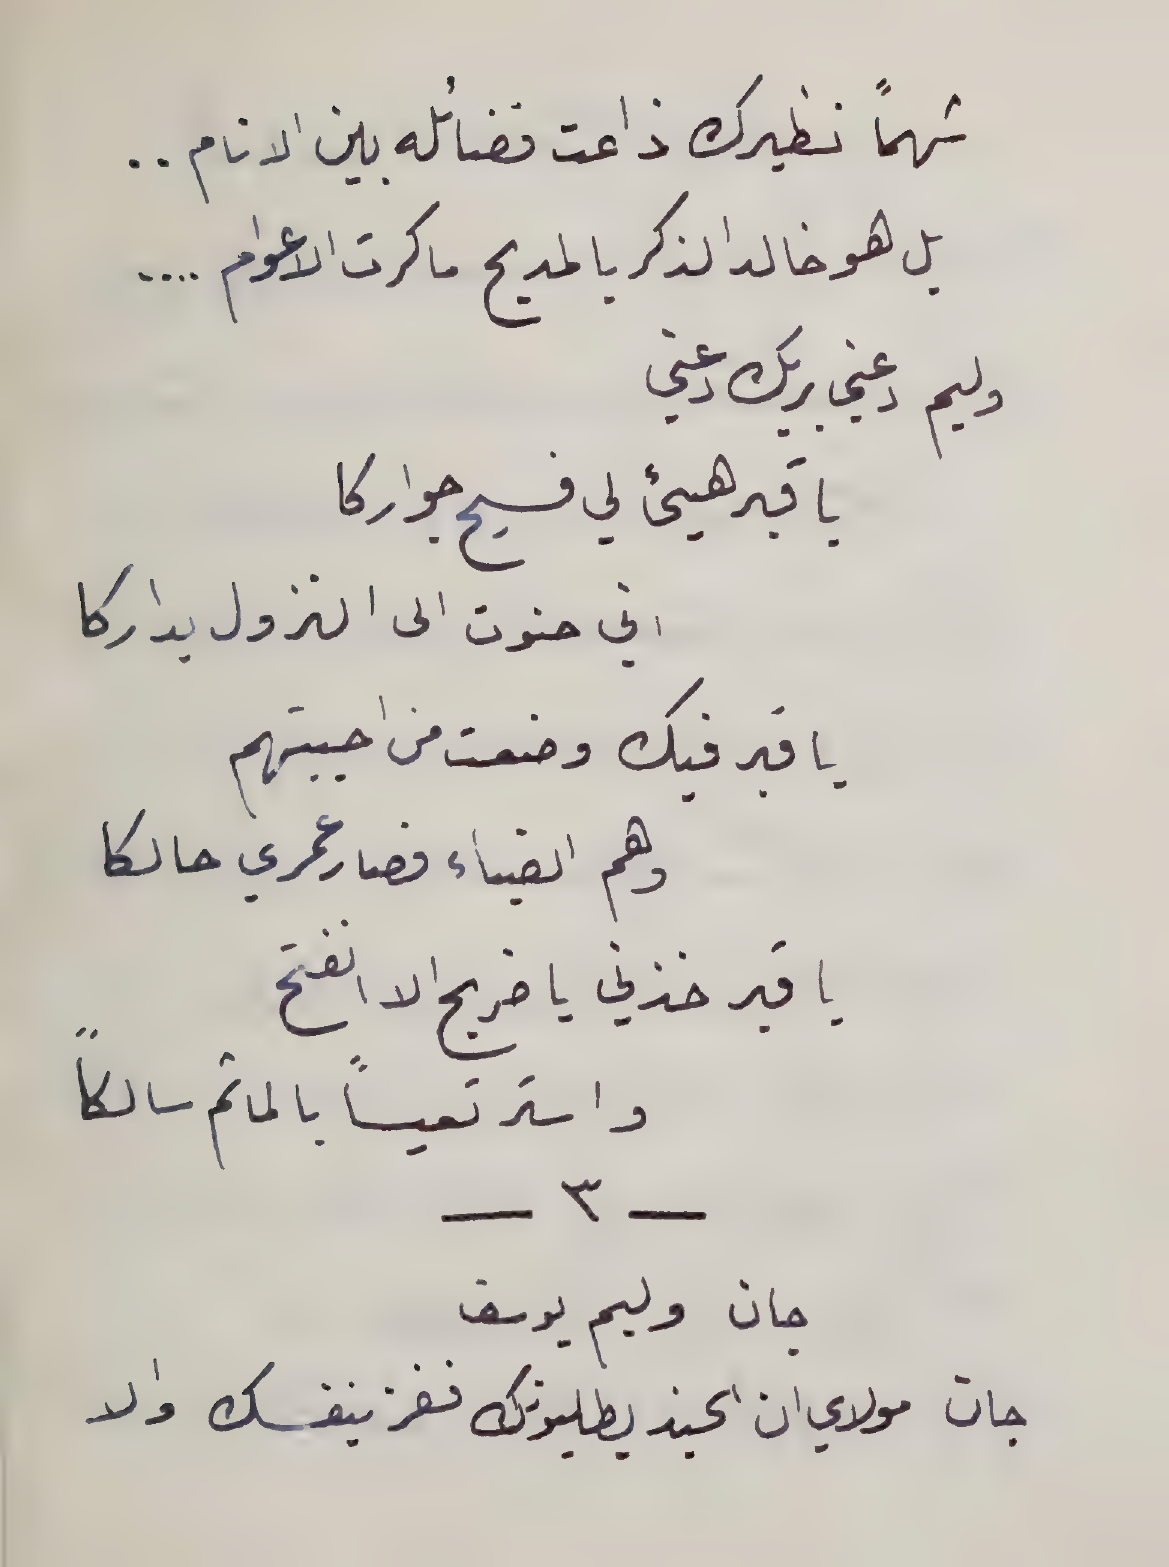 شهماً نظيرك ذاعت فضائله بين الانام ..
بل هو خالد الذكر بالمديح ما كرت الاعوام ....
وليم دعني بربك دعني
يا قبر هيئ لي فسيح جواركا
اني حنوت الى النزول بداركا
يا قبر فيك وضعت من احببتهم
وهم الضياء فصار عمري حالكا
يا قبر خذني يا ضريح الا انفتح
واستر تعيساً بالمأتم سالكاً
— ٣ —
جان وليم يوسف
جان مولاي ان الجند يطلبونك ففز بنفسك والا